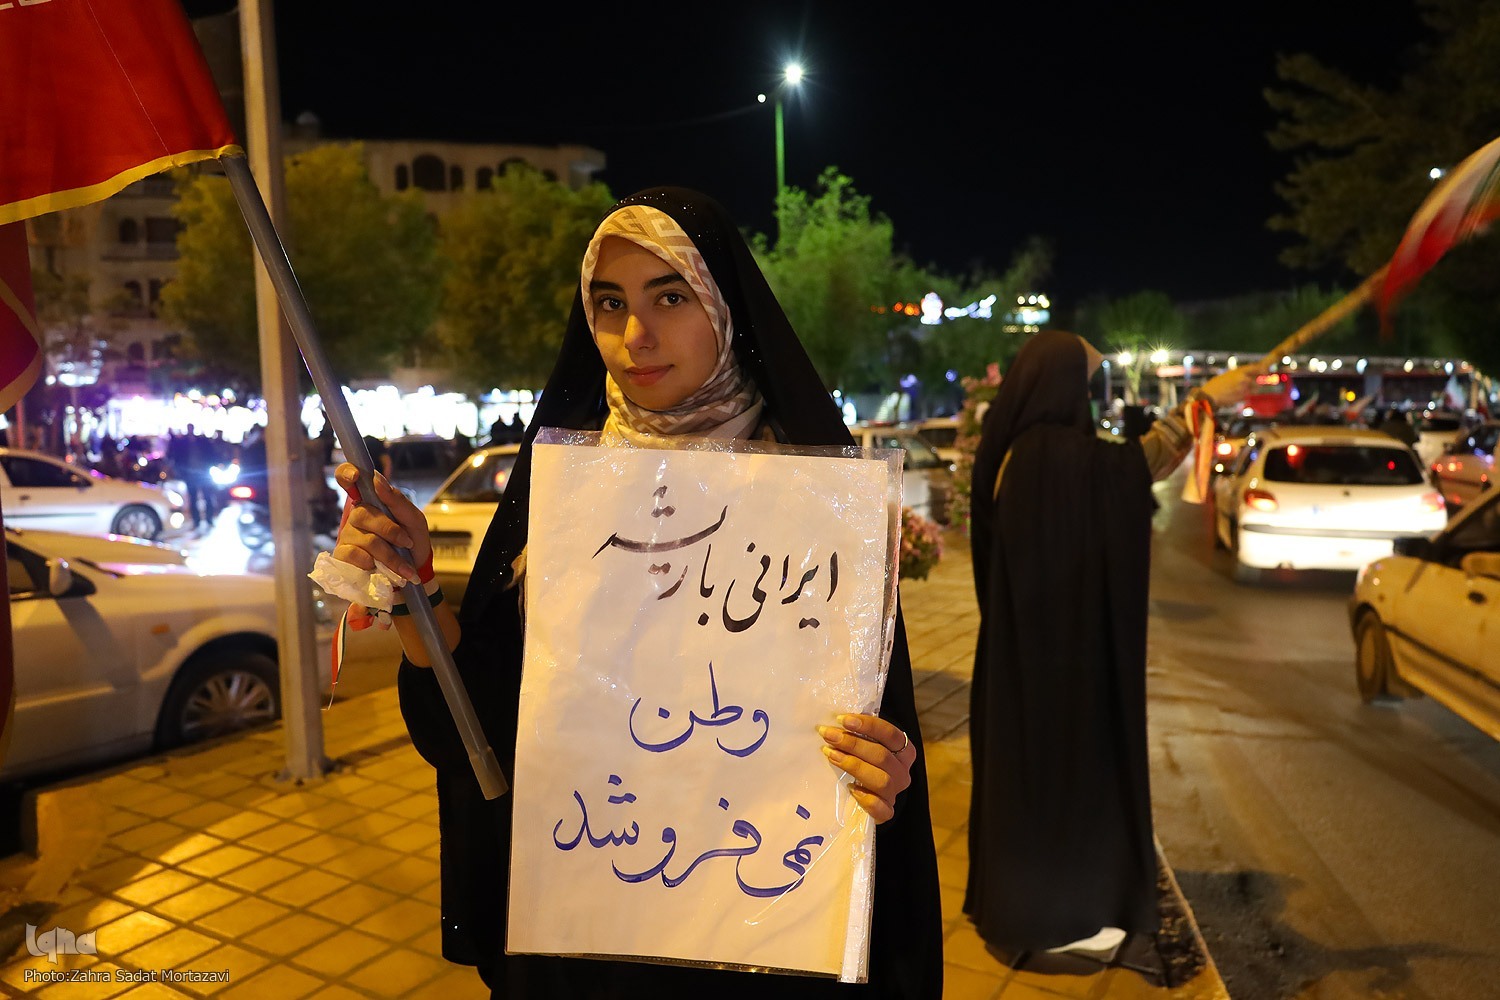 ایرانی با ریشه
وطن
نمی‌فروشد
Iqna
Photo:Zahra Sadat Mortazavi